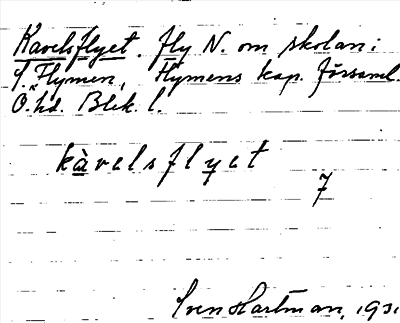 Kavelsflyet. fly N. om skolan i
S. Flymen, Flymens kap. församl.
Ö. hd. Blek. l.
kàvelsflyet
7
Sven Hartman, 1931